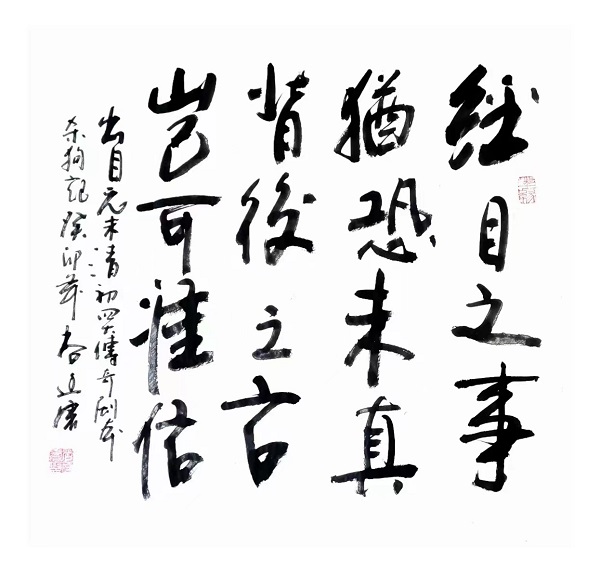 经目之事
猶恐未真
背後之言
岂可准信
出自元末清初四大傳奇剧本
杀狗記癸卯年春